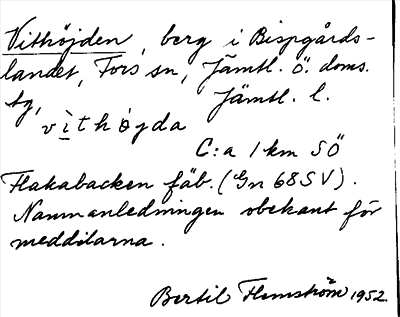 Vithöjden, berg i Bispgårds-
landet, Fors sn, Jämtl. ö. doms.
tg, Jämtl. l.
vìthöjda
C:a 1 km SÖ
Flakabacken fäb. (Gn 68SV).
Namnanledningen obekant för
meddelarna.
Bertil Flemström 1952.